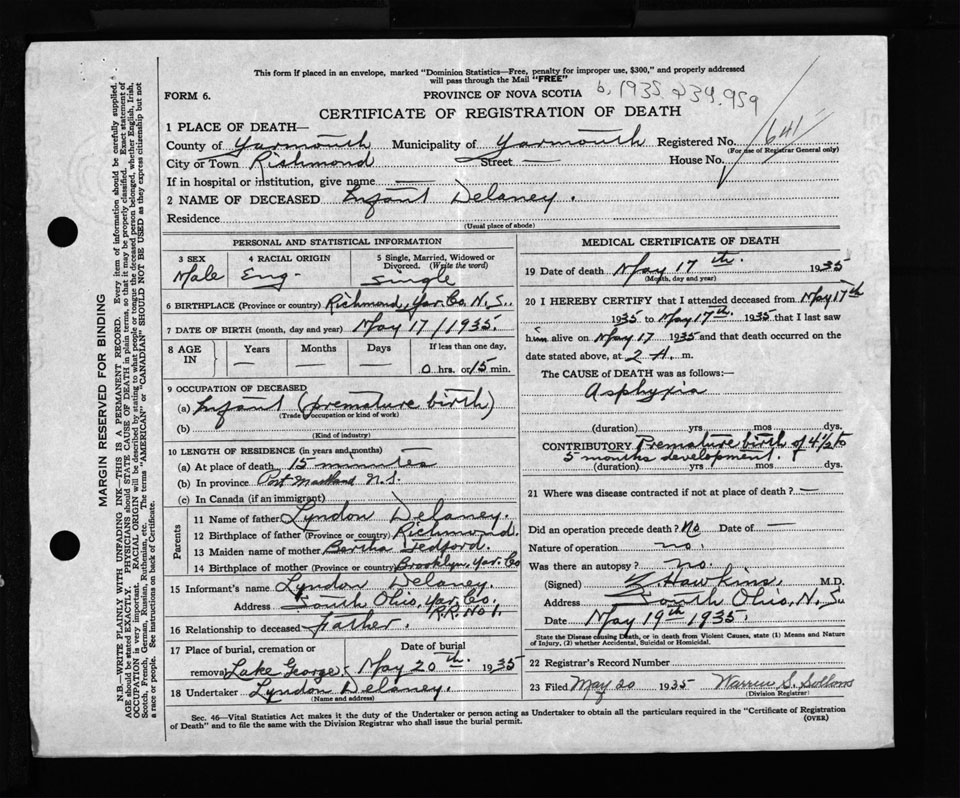 This form if placed in an envelope, marked "Dominion Statistics—Free, penalty for improper use, $300," and properly addressed
will pass through the Mail "FREE"
FORM 6.
PROVINCE OF NOVA SCOTIA
b. 1935 234.959
CERTIFICATE OF REGISTRATION OF DEATH
1 PLACE OF DEATH—
641
County of Yarmouth Municipality of Yarmouth Registered No.
(For use of Registrar General only)
City or Town Richmond Street — House No.
If in hospital or institution, give name —
2 NAME OF DECEASED Infant Delaney.
Residence
(Usual place of abode)
PERSONAL AND STATISTICAL INFORMATION
3 SEX 4 RACIAL ORIGIN 5 Single, Married, Widowed or
Divorced. (Write the word)
Male Eng- Single
6 BIRTHPLACE (Province or country) Richmond, Yar. Co. N.S.
7 DATE OF BIRTH (month, day and year) May 17/1935.
8 AGE IN Years Months Days If less than one day,
— — — 0 hrs. or 15 min.
9 OCCUPATION OF DECEASED
(a) Infant (premature birth)
(Trade occupation or kind of work)
(b)
(Kind of industry)
10 LENGTH OF RESIDENCE (in years and months)
(a) At place of death 15 minutes
(b) In province Port Maitland N.S.
(c) In Canada (if an immigrant)
Parents
11 Name of father Lyndon Delaney.
12 Birthplace of father (Province or country) Richmond.
13 Maiden name of mother Bertha Tedford.
14 Birthplace of mother (Province or country) Brooklyn, Yar. Co
15 Informant's name Lyndon Delaney.
Address South Ohio, Yar. Co.
R.R. No 1.
16 Relationship to deceased Father.
17 Place of burial, cremation or Date of burial
removal Lake George May 20th 1935
18 Undertaker Lyndon Delaney.
(Name and address)
MEDICAL CERTIFICATE OF DEATH
19 Date of death May 17th. 1935
(Month, day and year)
20 I HEREBY CERTIFY that I attended deceased from May 17th
1935 to May 17th 1935 that I last saw
him alive on May 17 1935 and that death occurred on the
date stated above, at 2 A. m.
The CAUSE of DEATH was as follows:—
Asphyxia
(duration) yrs mos dys.
CONTRIBUTORY Premature birth of 4½ to
5 months development.
(duration) yrs mos dys.
21 Where was disease contracted if not at place of death? —
Did an operation precede death? No Date of —
Nature of operation no.
Was there an autopsy? no.
(Signed) Hawkins, M.D.
Address South Ohio, N.S.
Date May 19th 1935.
State the Disease causing Death, or in death from Violent Causes, state (1) Means and Nature
of Injury, (2) whether Accidental, Suicidal or Homicidal.
22 Registrar's Record Number
23 Filed May 20 1935 Warren S.
(Division Registrar)
Sec. 46—Vital Statistics Act makes it the duty of the Undertaker or person acting as Undertaker to obtain all the particulars required in the "Certificate of Registration
of Death" and to file the same with the Division Registrar who shall issue the burial permit.
(OVER)
MARGIN RESERVED FOR BINDING
N.B.—WRITE PLAINLY WITH UNFADING INK—THIS IS A PERMANENT RECORD. Every item of information should be carefully supplied.
AGE should be stated EXACTLY. PHYSICIANS should STATE CAUSE OF DEATH in plain terms, so that it may be properly classified. Exact statement of
OCCUPATION is very important. RACIAL ORIGIN will be described by stating to what people or tongue the deceased person belonged, whether English, Irish,
Scotch, French, German, Russian, Ruthenian, etc. The terms "AMERICAN" or "CANADIAN" SHOULD NOT BE USED as they express citizenship but not
a race or people. See instructions on back of Certificate.